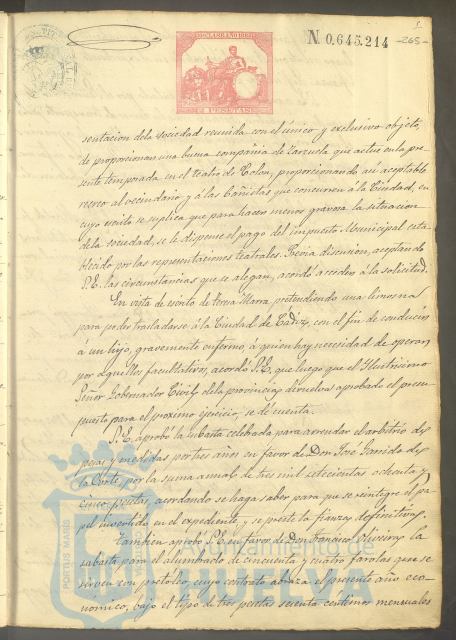 N. 0.645.214
-265-
2 PESETAS
sentacion de la sociedad reunida con el único y exclusivo objeto,
de proporcionar una buena compañia de Zarzuela que actue en la pre-
sente temporada en el Teatro de Colon, proporcionando así aceptable
recreo al vecindario y á los bañistas que concurren á la Ciudad, en
cuyo escrito se suplica que para hacer menos gravosa la situacion
de la sociedad, se le dispense el pago del impuesto Municipal esta-
blecido por las representaciones teatrales. Previa discusion, aceptando
S.E. las circunstancias que se alegan, acordó acceder á la solicitud.
En vista de escrito de Marra, pretendiendo una limosna
para poder trasladarse á la Ciudad de Cadiz, con el fin de conducir
á un hijo, gravemente enfermo, á quien hay necesidad de operar
por aquellos facultativos, acordó S.E. que luego que el Ilustrisimo
Señor Gobernador Civil de la provincia devuelva aprobado el presu-
puesto para el proximo ejercicio, se dé cuenta.
S.E. aprobó la subasta celebrada para arrendar el arbitrio de
pesas y medidas por tres años en favor de Don José Garrido de
la Corte, por la suma anual de tres mil setecientas ochenta y
cinco pesetas, acordando se haga saber para que se reintegre el pa-
pel invertido en el expediente, y se preste la fianza definitiva.
Tambien aprobó S.E. en favor de Don Francisco la
subasta para el alumbrado de cincuenta y cuatro farolas que se
sirven con petroleo, cuyo contrato abraza el presente año eco-
nomico, bajo el tipo de tres pesetas sesenta centimos mensuales
Ayuntamiento de
HUELVA
PORTUS MARIS